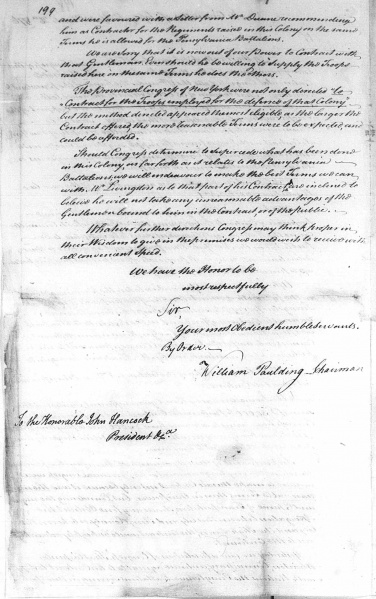 199
and were favoured with a Letter from Mr Duane recommending
him as Contractor for the Regiments raised in this Colony on the same
Terms he is allowed for the Pensylvania Battalions.
We are Sorry that it is now out of our power to Contract with
that Gentleman, Even should he be willing to Supply the Troops
raised here on the same Terms he does the others.
The Provincial Congress of New York were not only directed to
Contract for the Troops employed for the defence of that Colony
but the method directed appeared the most eligible as the larger the
Contract offered, the more reasonable Terms were to be expected, and
could be afforded.
Should Congress determine to Supercede what has been done
in this Colony, so far forth as it relates to the Pensylvania
Battalions, we will endeavour to make the best Terms we can
with Mr Livingston as to that part of his Contract, & are inclined to
believe he will not take any unreasonable advantages of the
Gentlemen bound to him in the Contract or of the Public.
Whatever further directions Congress may think proper in
their Wisdom to give in the premises we would wish to receive with
all convenient Speed.
We have the Honor to be
most respectfully
Sir,
Your most Obedient humble servants.
By Order
William Paulding Chairman
To the Honorable John Hancock
President &ca.